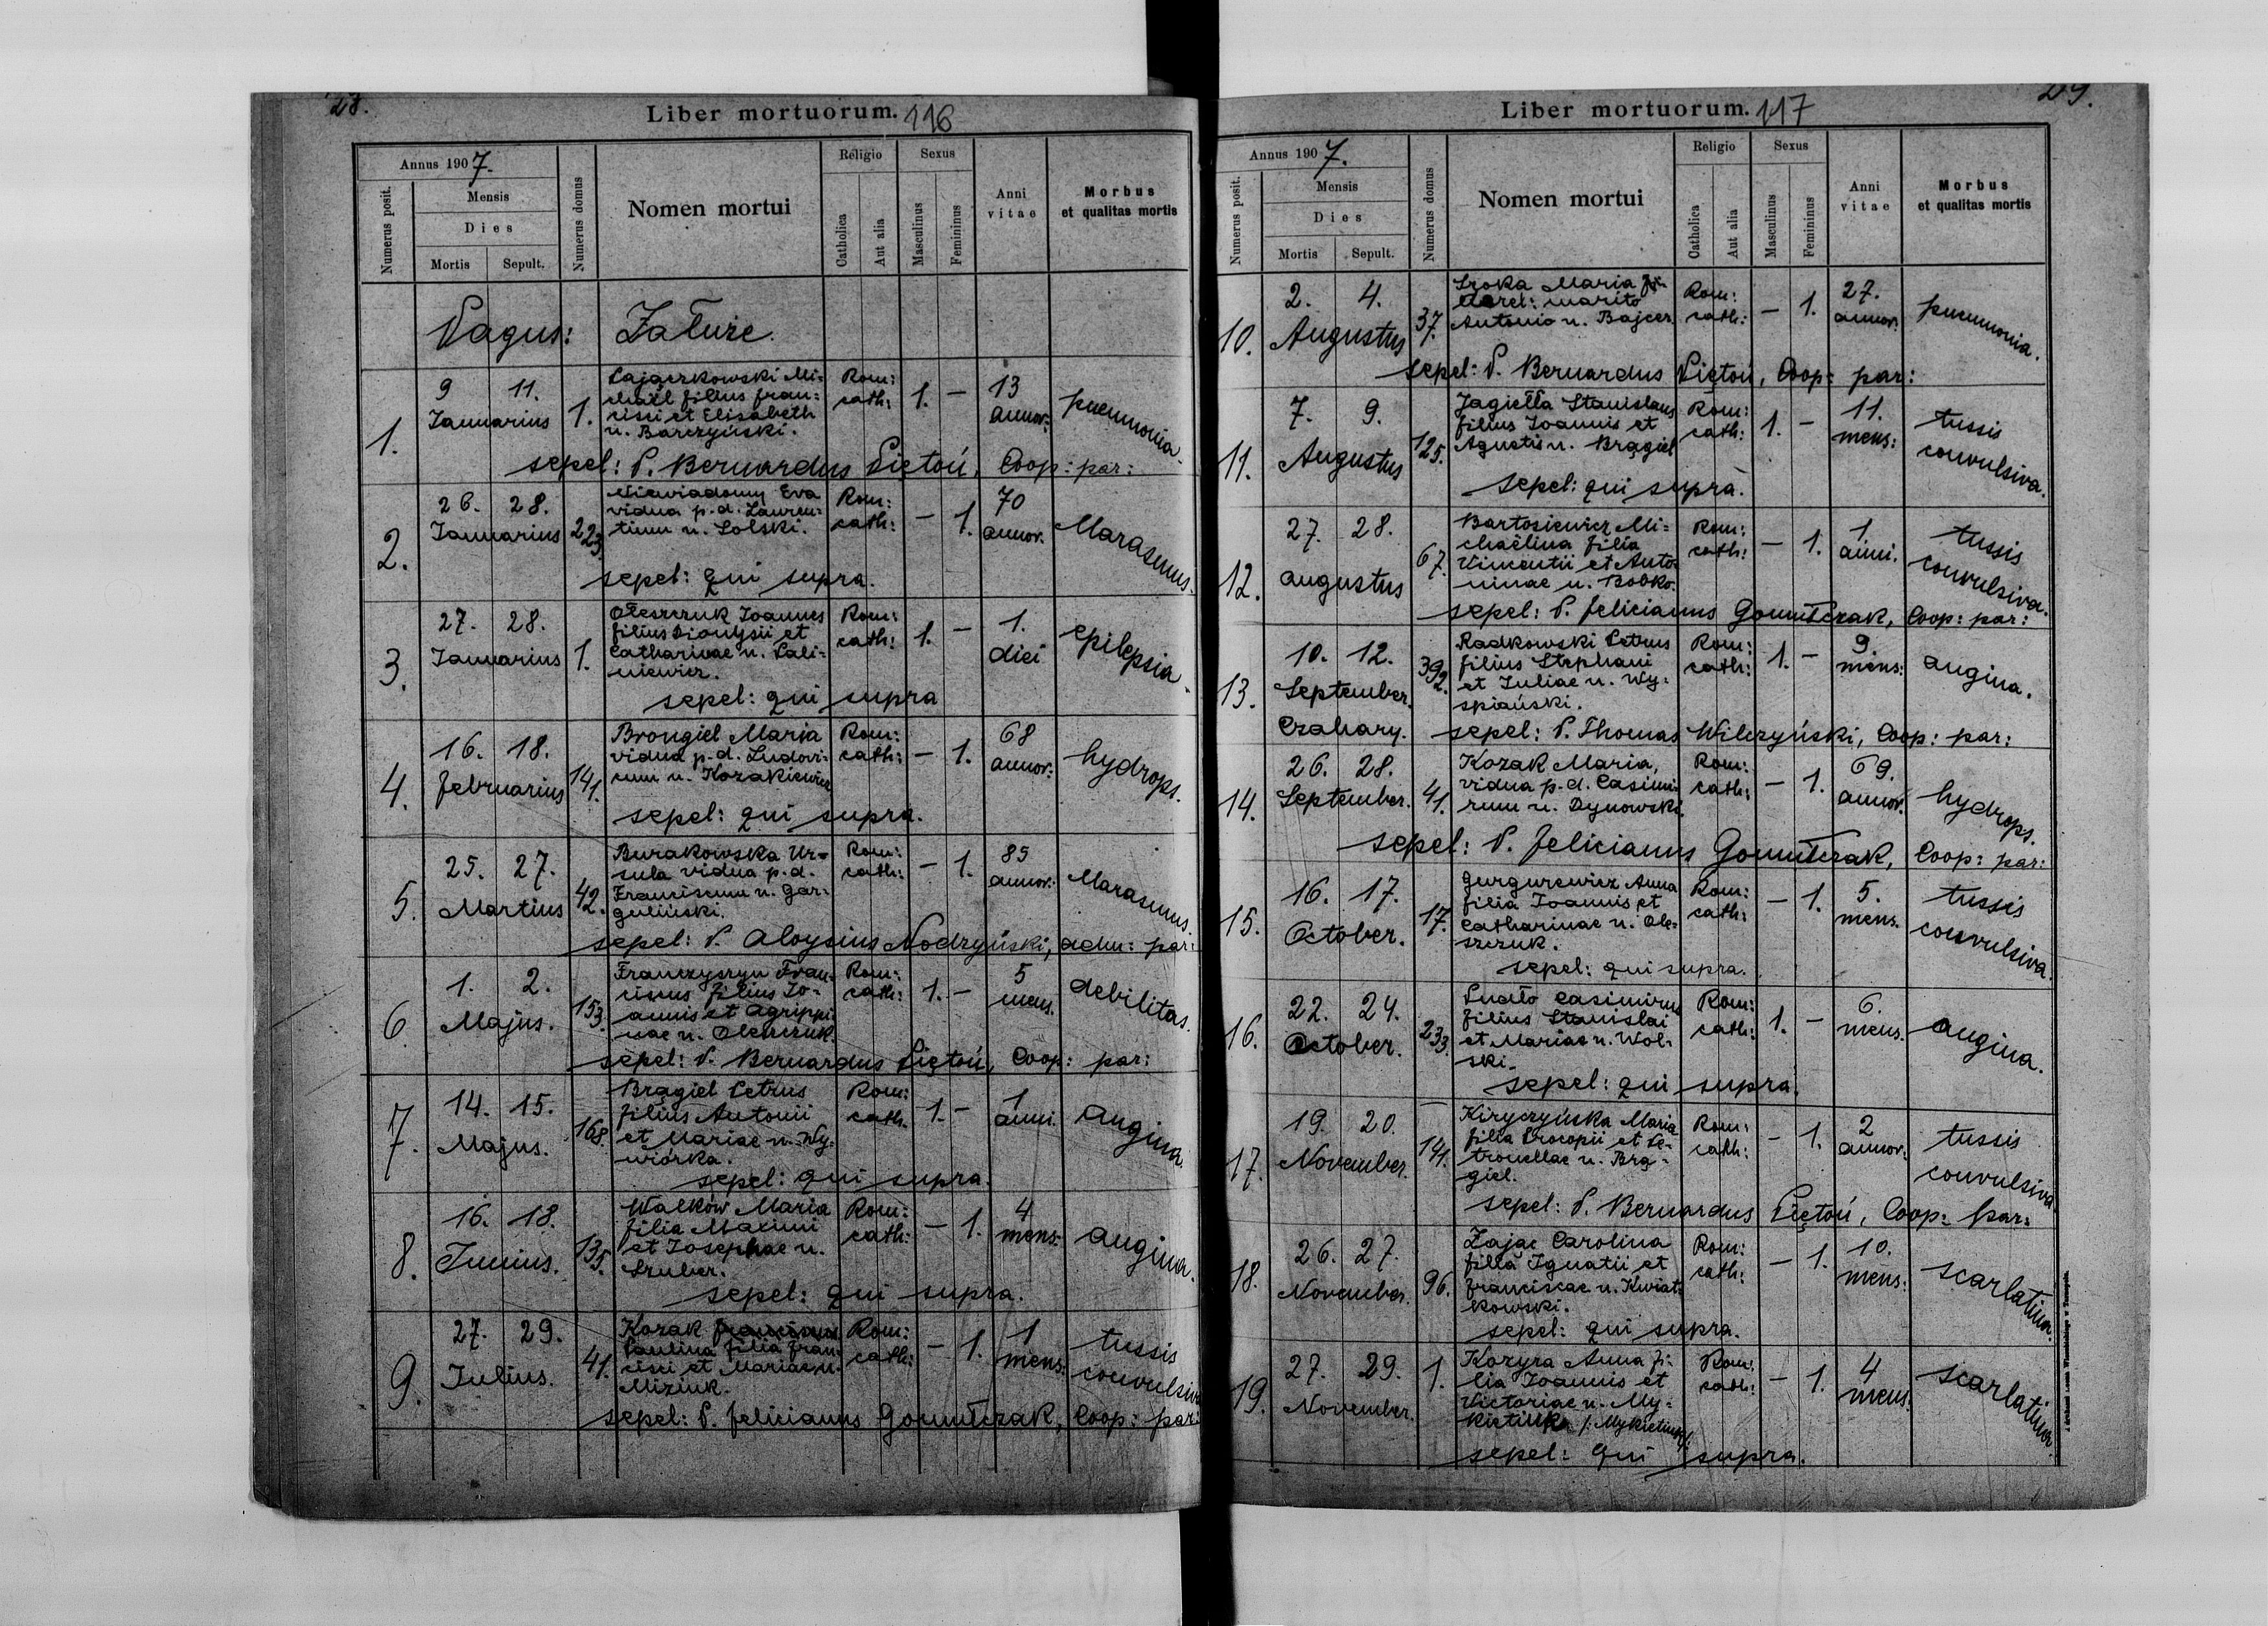 28.
Liber mortuorum. 116
Annus 1907.
Numerus posit.
Mensis
Dies
Mortis
Sepult.
Numerus domus
Nomen mortui
Religio
Catholica
Aut alia
Sexus
Masculinus
Femininus
Anni vitae
Morbus et qualitas mortis
Pagus: Załuże.
1. 9 11. Januarius 1.
Zajączkowski Mi=
chaël filius Fran=
cisci et Elisabeth
n. Barczyński.
Rom: cath: 1. – 13 annor: pneumonia.
sepel: P. Bernardus Piętoń, Coop: par:
2. 26. 28. Januarius 223.
Niewiadomy Eva
vidua p. d. Lauren=
tium n. Solski.
Rom: cath: – 1. 70 annor. Marasmus.
sepel: qui supra.
3. 27. 28. Januarius 1.
Oleszczuk Joannes
filius Dionysii et
Catharinae n. Kali=
niewicz.
Rom: cath: 1. – 1. diei epilepsia.
sepel: qui supra
4. 16. 18. Februarius 141.
Brongiel Maria
vidua p. d. Ludovi=
cum n. Kozakiewicz
Rom: cath: – 1. 68 annor: hydrops.
sepel: qui supra.
5. 25. 27. Martius 42.
Burakowska Ur=
sula vidua p. d.
Franciscum n. Gar=
guliński.
Rom: cath: – 1. 85 annor: Marasmus.
sepel: P. Aloysius Nodzyński, adm: par:
6. 1. 2. Majus. 153.
Franczyszyn Fran=
ciscus filius Jo=
annis et Agrippi
nae n. Oleszczuk.
Rom: cath: 1. – 5 mens. debilitas.
sepel: P. Bernardus Piętoń, Coop: par:
7. 14. 15. Majus. 168.
Brągiel Petrus
filius Antonii
et Mariae n. Wy=
wiórka.
Rom: cath. 1. – 1 anni. angina.
sepel: qui supra.
8. 16. 18. Junius. 135.
Walków Maria
filia Maximi
et Josephae n.
Szuber.
Rom: cath: – 1. 4 mens: angina.
sepel: qui supra.
9. 27. 29. Julius. 41.
Kozak
Paulina filia Fran=
cisci et Mariae n.
Miziuk.
Rom: cath: – 1. 1 mens: tussis convulsiva
sepel: P. Felicianus Gomułczak, Coop: par:
29.
Liber mortuorum. 117
Annus 1907.
Numerus posit.
Mensis
Dies
Mortis
Sepult.
Numerus domus
Nomen mortui
Religio
Catholica
Aut alia
Sexus
Masculinus
Femininus
Anni vitae
Morbus et qualitas mortis
10. 2. 4. Augustus 37.
Sroka Maria
marito
Antonio n. Bajcer
Rom: cath: – 1. 27. annor: pneumonia.
sepel: P. Bernardus Piętoń, Coop: par:
11. 7. 9. Augustus 125.
Jagiełła Stanislaus
filius Joannis et
Agnetis n. Brągiel
Rom: cath: 1. – 11. mens: tussis convulsiva.
sepel: qui supra.
12. 27. 28. Augustus 67.
Bartosiewicz Mi=
chaëlina filia
Vincentii et Anto=
ninae n. Bobko.
Rom: cath: – 1. 1. anni. tussis convulsiva.
sepel: P. Felicianus Gomułczak, Coop: par:
13. 10. 12. September. 392.
Czahary.
Radkowski Petrus
filius Stephani
et Juliae n. Wy=
spiański.
Rom: cath: 1. – 9. mens: angina.
sepel: P. Thomas Wilczyński, Coop: par:
14. 26. 28. September. 41.
Kozak Maria,
vidua p. d. Casimi=
rum n. Dynowski.
Rom: cath: – 1. 69. annor. hydrops.
sepel: P. Felicianus Gomułczak, Coop: par:
15. 16. 17. October. 17.
Gurgurewicz Anna
filia Joannis et
Catharinae n. Ole=
szczuk.
Rom: cath: – 1. 5. mens. tussis convulsiva.
sepel: qui supra.
16. 22. 24. October. 233.
Pudło Casimirus
filius Stanislai
et Mariae n. Wol=
ski.
Rom: cath: 1. – 6. mens. angina.
sepel: qui supra.
17. 19. 20. November. 141.
Kiryczyńska Maria
filia Procopii et Pe=
tronellae n. Brą=
giel.
Rom: cath: – 1. 2 annor: tussis convulsiva
sepel: P. Bernardus Piętoń, Coop: par:
18. 26. 27. November. 96.
Zając Carolina
filia Ignatii et
Franciscae n. Kwiat=
kowski.
Rom: cath: – 1. 10. mens: scarlatina.
sepel: qui supra.
19. 27. 29. November. 1.
Kozyra Anna fi=
lia Joannis et
Victoriae n. My=
kietiuk /: Mykietiuk :/
Rom: cath: – 1. 4 mens: scarlatina.
sepel: qui supra.